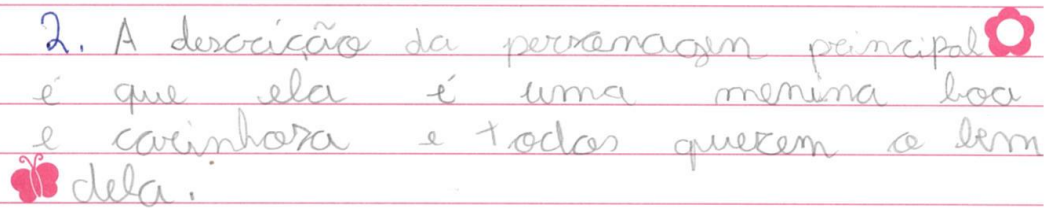 2. A descrição da personagem principal
é que ela é uma menina boa
e carinhosa e todos querem o bem
dela.